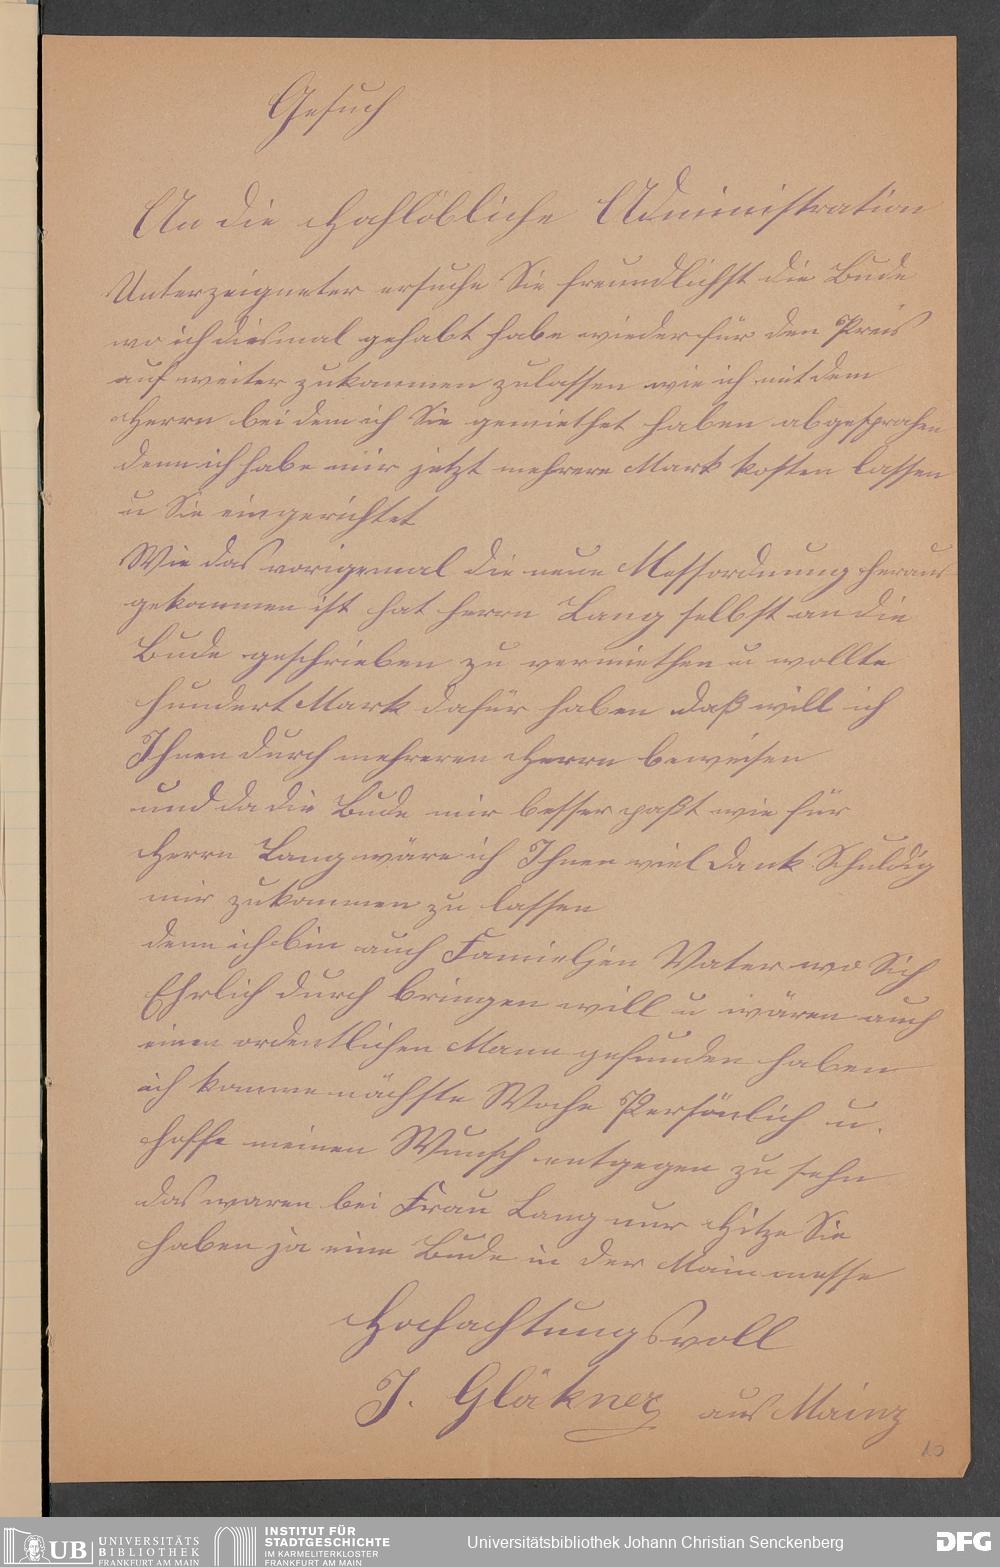 Gesuch
An die Hochlöbliche Administration
Unterzeigneter ersuche Sie freundlichst die Bude
wo ich diesmal gehabt habe wieder für den Preis
auf weiter zukommen zulassen wie ich mit dem
Herrn bei dem ich Sie gemiethet haben abgesprochen
denn ich habe mir jetzt mehrere Mark kosten lassen
u Sie eingerichtet
Wie das vorigemal die neue Messordnung heraus
gekommen ist hat Herrn Lang selbst an die
Bude geschrieben zu vermiethen u wollte
hundert Mark dafür haben daß will ich
Ihnen durch mehreren Herrn beweisen
und da die Bude mir besser paßt wie für
Herrn Lang wäre ich Ihnen viel Dank Schuldig
mir zukommen zu lassen
denn ich bin auch Familjen Vater wo Sich
Ehrlich durch bringen will u wären auch
einen ordentlichen Mann gefunden haben
ich komme nächste Woche Persönlich u.
hoffe meinen Wunsch entgegen zu sehn
das waren bei Frau Lang nur Hitze Sie
haben ja eine Bude in der Mainmesse
Hochachtungsvoll
J. Gläkner aus Mainz
10
UB UNIVERSITÄTS
BIBLIOTHEK
FRANKFURT AM MAIN
INSTITUT FÜR
STADTGESCHICHTE
IM KARMELITERKLOSTER
FRANKFURT AM MAIN
Universitätsbibliothek Johann Christian Senckenberg
DFG